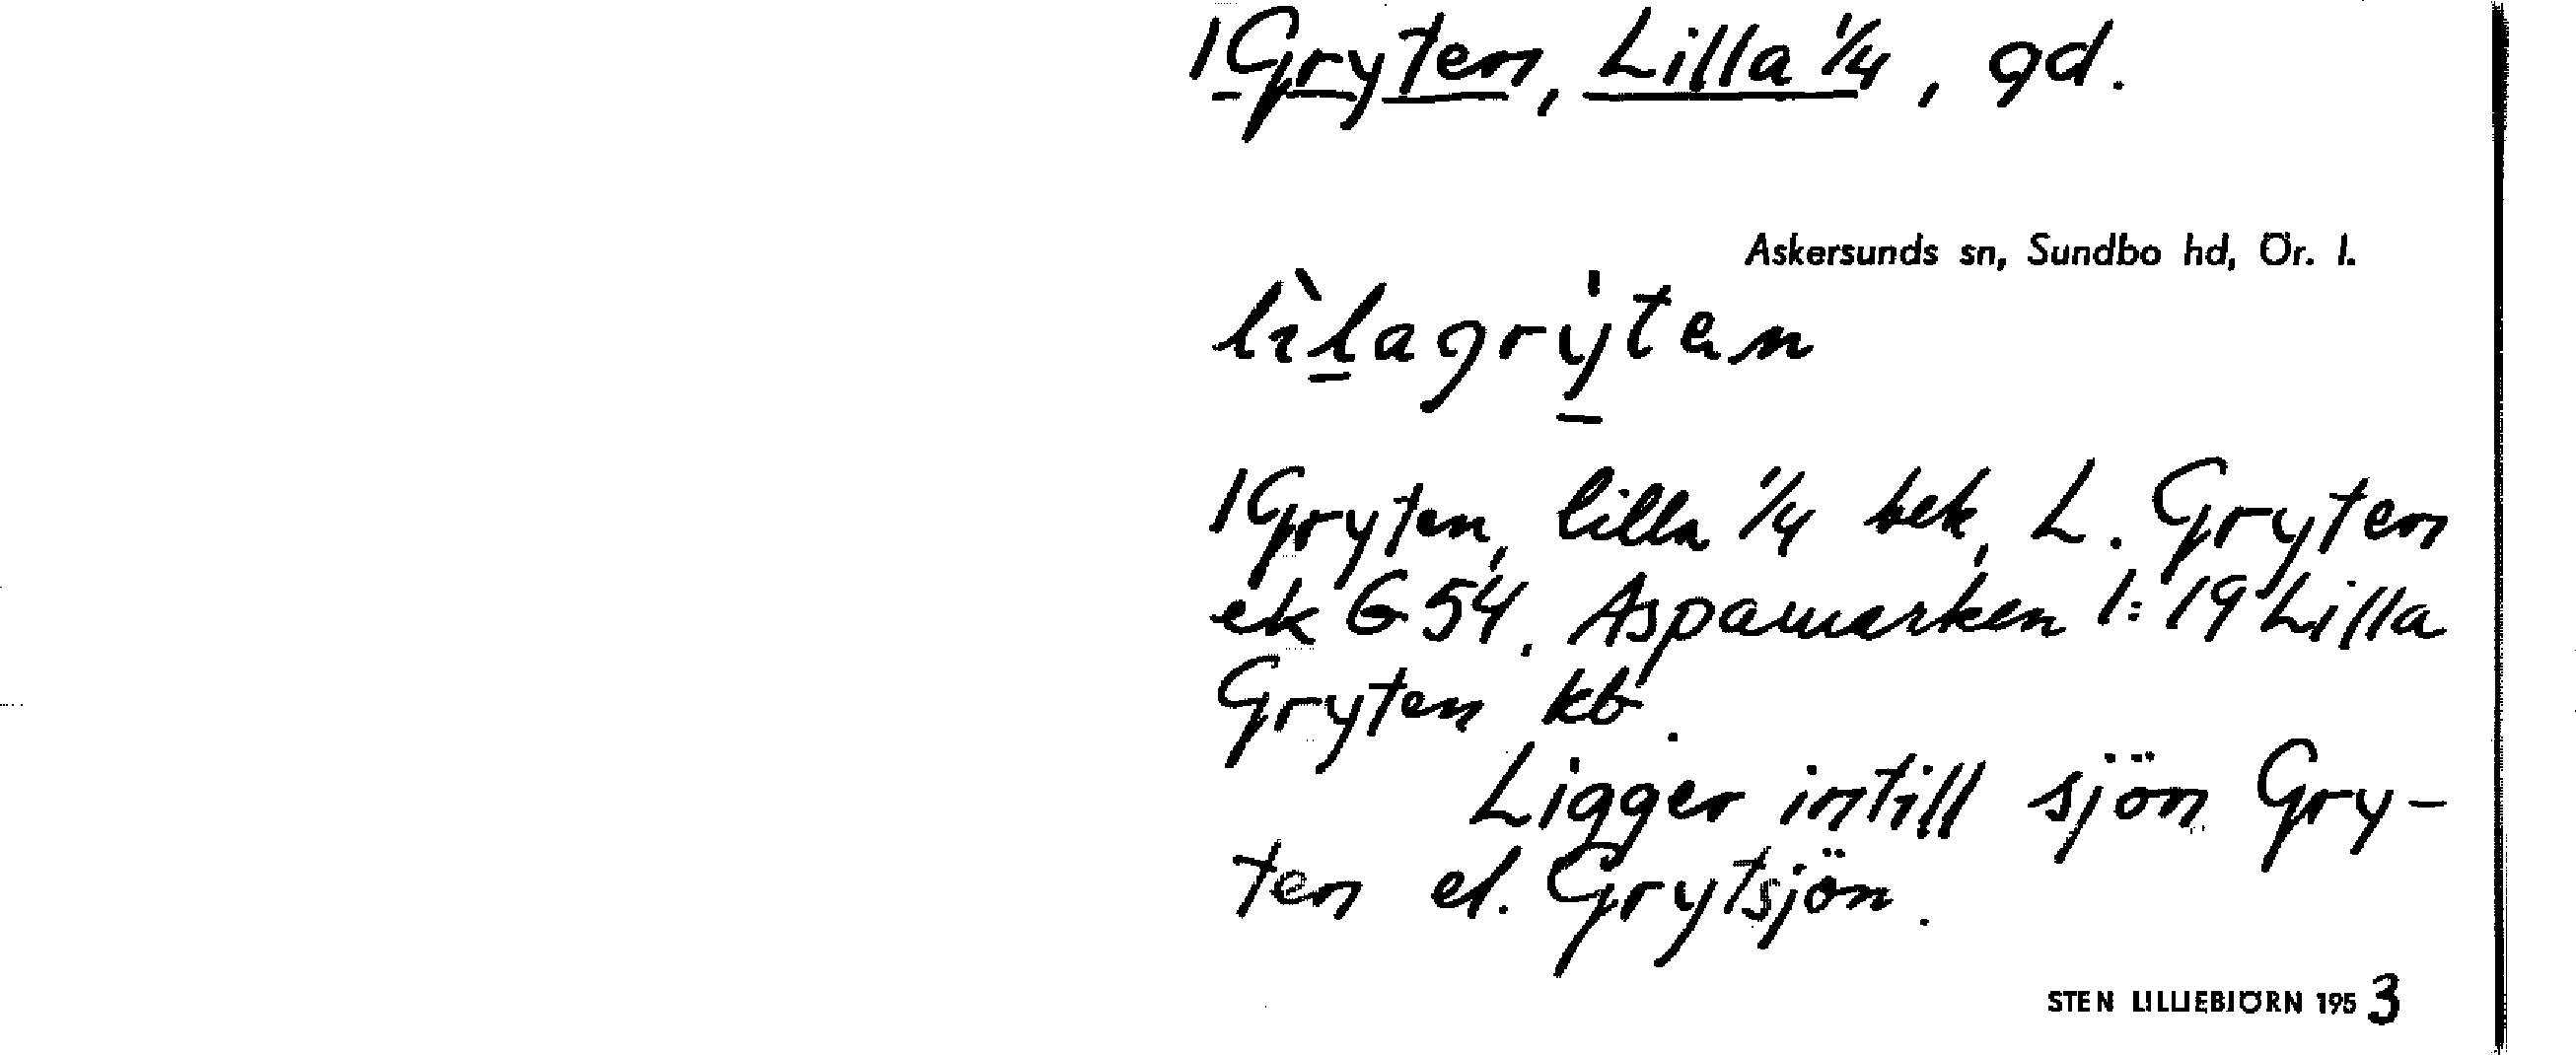 1 Gryten, Lilla 1/4, gd.
Askersunds sn, Sundbo hd, Ör. l.
lìlagrýten
1 Gryten, lilla 1/4 bek, L. Gryten
ek G 54. Aspamarken 1:19 Lilla
Gryten kb.
Ligger intill sjön Gry-
ten el. Grytsjön.
STEN LILLIEBJÖRN 1953